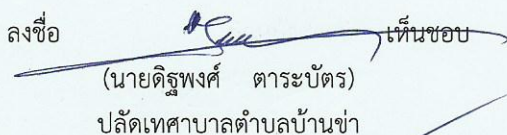 ลงชื่อ เห็นชอบ
(นายดิฐพงศ์ ตาระบัตร)
ปลัดเทศาบาลตำบลบ้านข่า